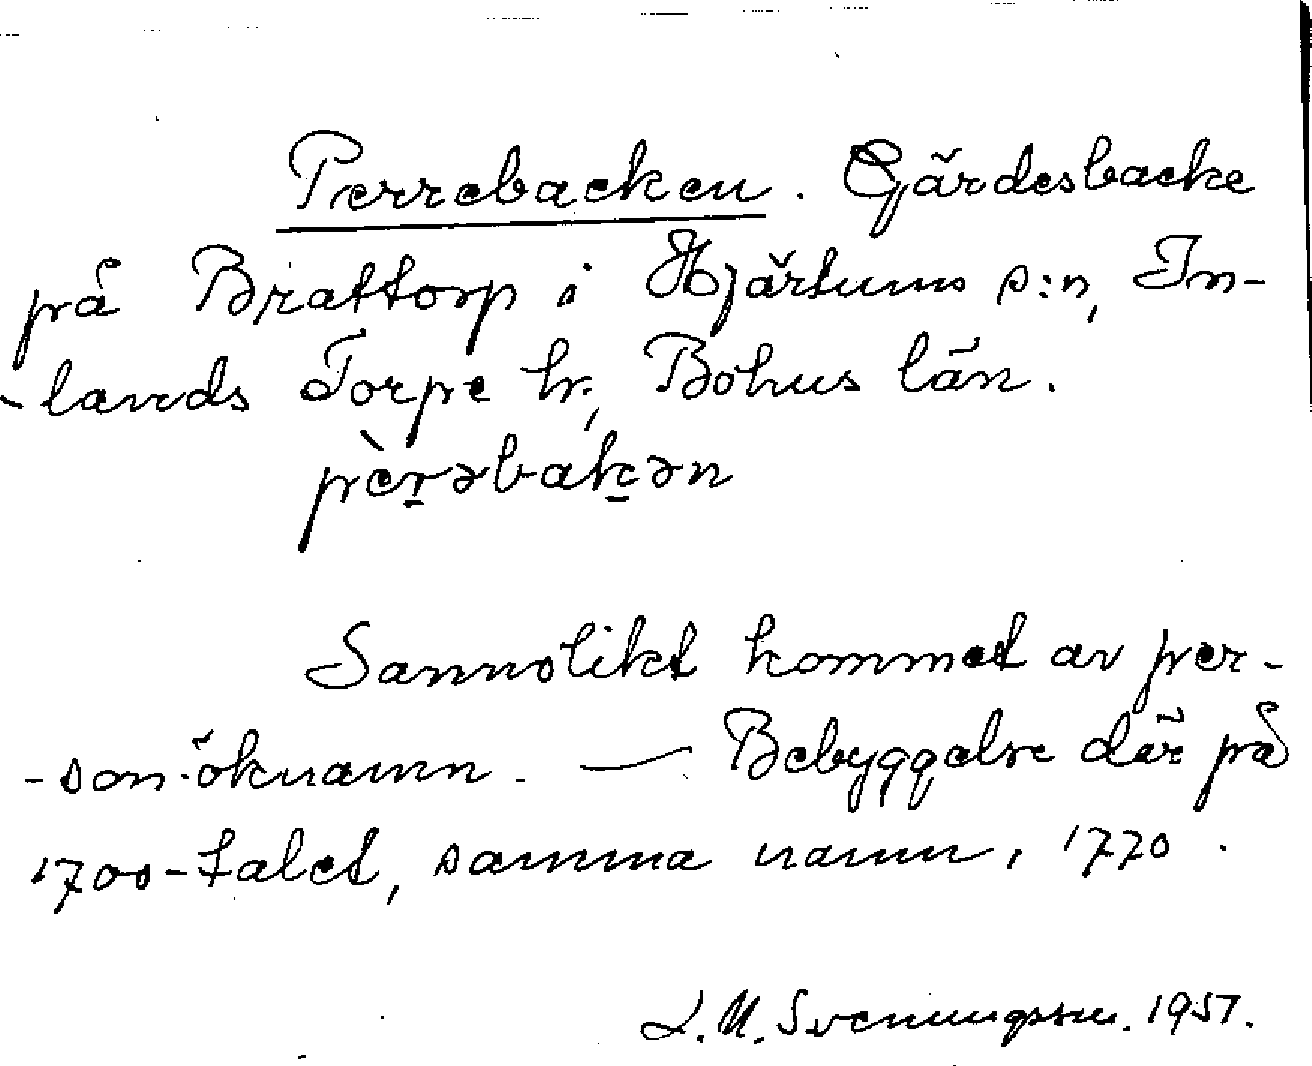 Perrebacken. Gärdesbacke
på Brattorp i Hjärtums s:n, In-
-lands Torpe hr, Bohus län.
pèr̠əbak̠ən
Sannolikt kommet av per-
-son-öknamn. — Bebyggelse där på
1700-talet, samma namn, 1770.
L. M. Svenungsson. 1957.